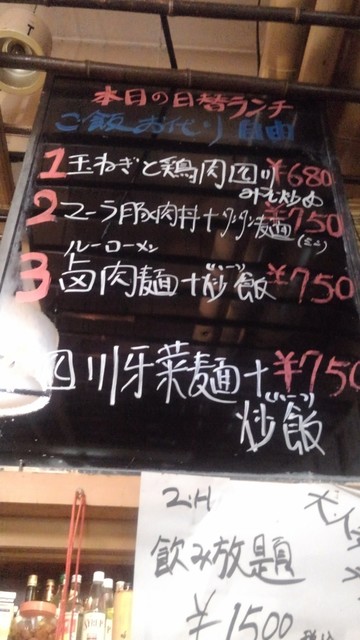 本日の日替ランチ
ご飯お代り自由
1玉ねぎと鶏肉四川¥680
みそ炒め
2マーラ豚肉丼+タンタン麺¥750
(ミニ)
ルーローメン
3卤肉麺+炒飯¥750
(ハーフ)
四川牙菜麺+¥750
(ハーフ)
炒飯
2:H
飲み放題
¥1500